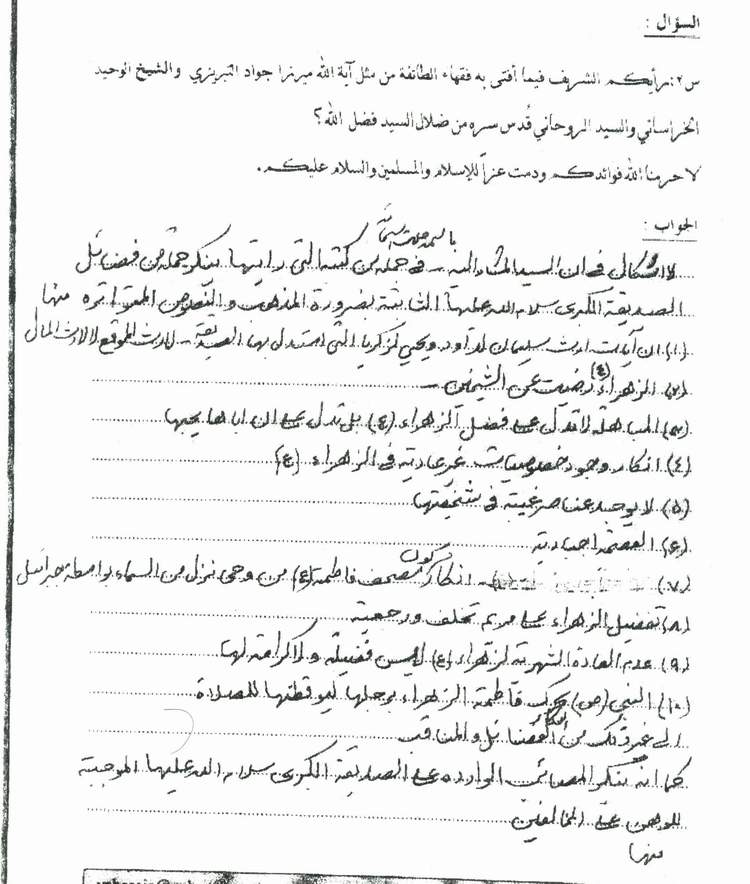 السؤال :
س٢: رأيكم الشريف فيما أفتى به فقهاء الطائفة من مثل آية الله ميرزا جواد التبريزي والشيخ الوحيد
الخراساني والسيد الروحاني قُدس سره من ضلال السيد فضل الله؟
لا حرمنا الله فوائدكم ودمت عزاً للإسلام والمسلمين والسلام عليكم.
الجواب :
باسمه جلت اسمائه
لا اشكال في ان السيد المشار اليه - في جملة من كتبه التي رايتها ينكر جملة من فضائل
الصديقة الكبرى سلام الله عليها الثابتة بضرورة المذهب والنصوص المتواترة منها
(١) ان آيات ارث سليمان لداود ويحيى لزكريا التي استدل بها الصديقة - للارث الموقع لا لارث المال
(٢) الزهراء (ع) رضيت عن الشيخين -
(٣) المباهلة لا تدل على فضل الزهراء (ع) بل تدل على ان اباها يحبها
(٤) انكار وجود خصوصيات غير عادية في الزهراء (ع)
(٥) لا يوجد عناصر غيبية في شخصيتها
(٦) العصمة اجبارية
(٧) انكار كون مصحف فاطمة (ع) من وحى نزل من السماء بواسطة جبرائيل
(٨) تفضيل الزهراء على مريم تخلف ورجعية
(٩) عدم العادة الشهرية للزهراء (ع) ليس فضيلة ولا كرامة لها
(١٠) النبي (ص) يحرك فاطمة الزهراء برجلها ليوقظها للصلاة
الى غير ذلك من انكار الفضائل والمناقب
كما انه ينكر المصائب الواردة على الصديقة الكبرى سلام الله عليها الموجبة
للوهن على المخالفين
منها